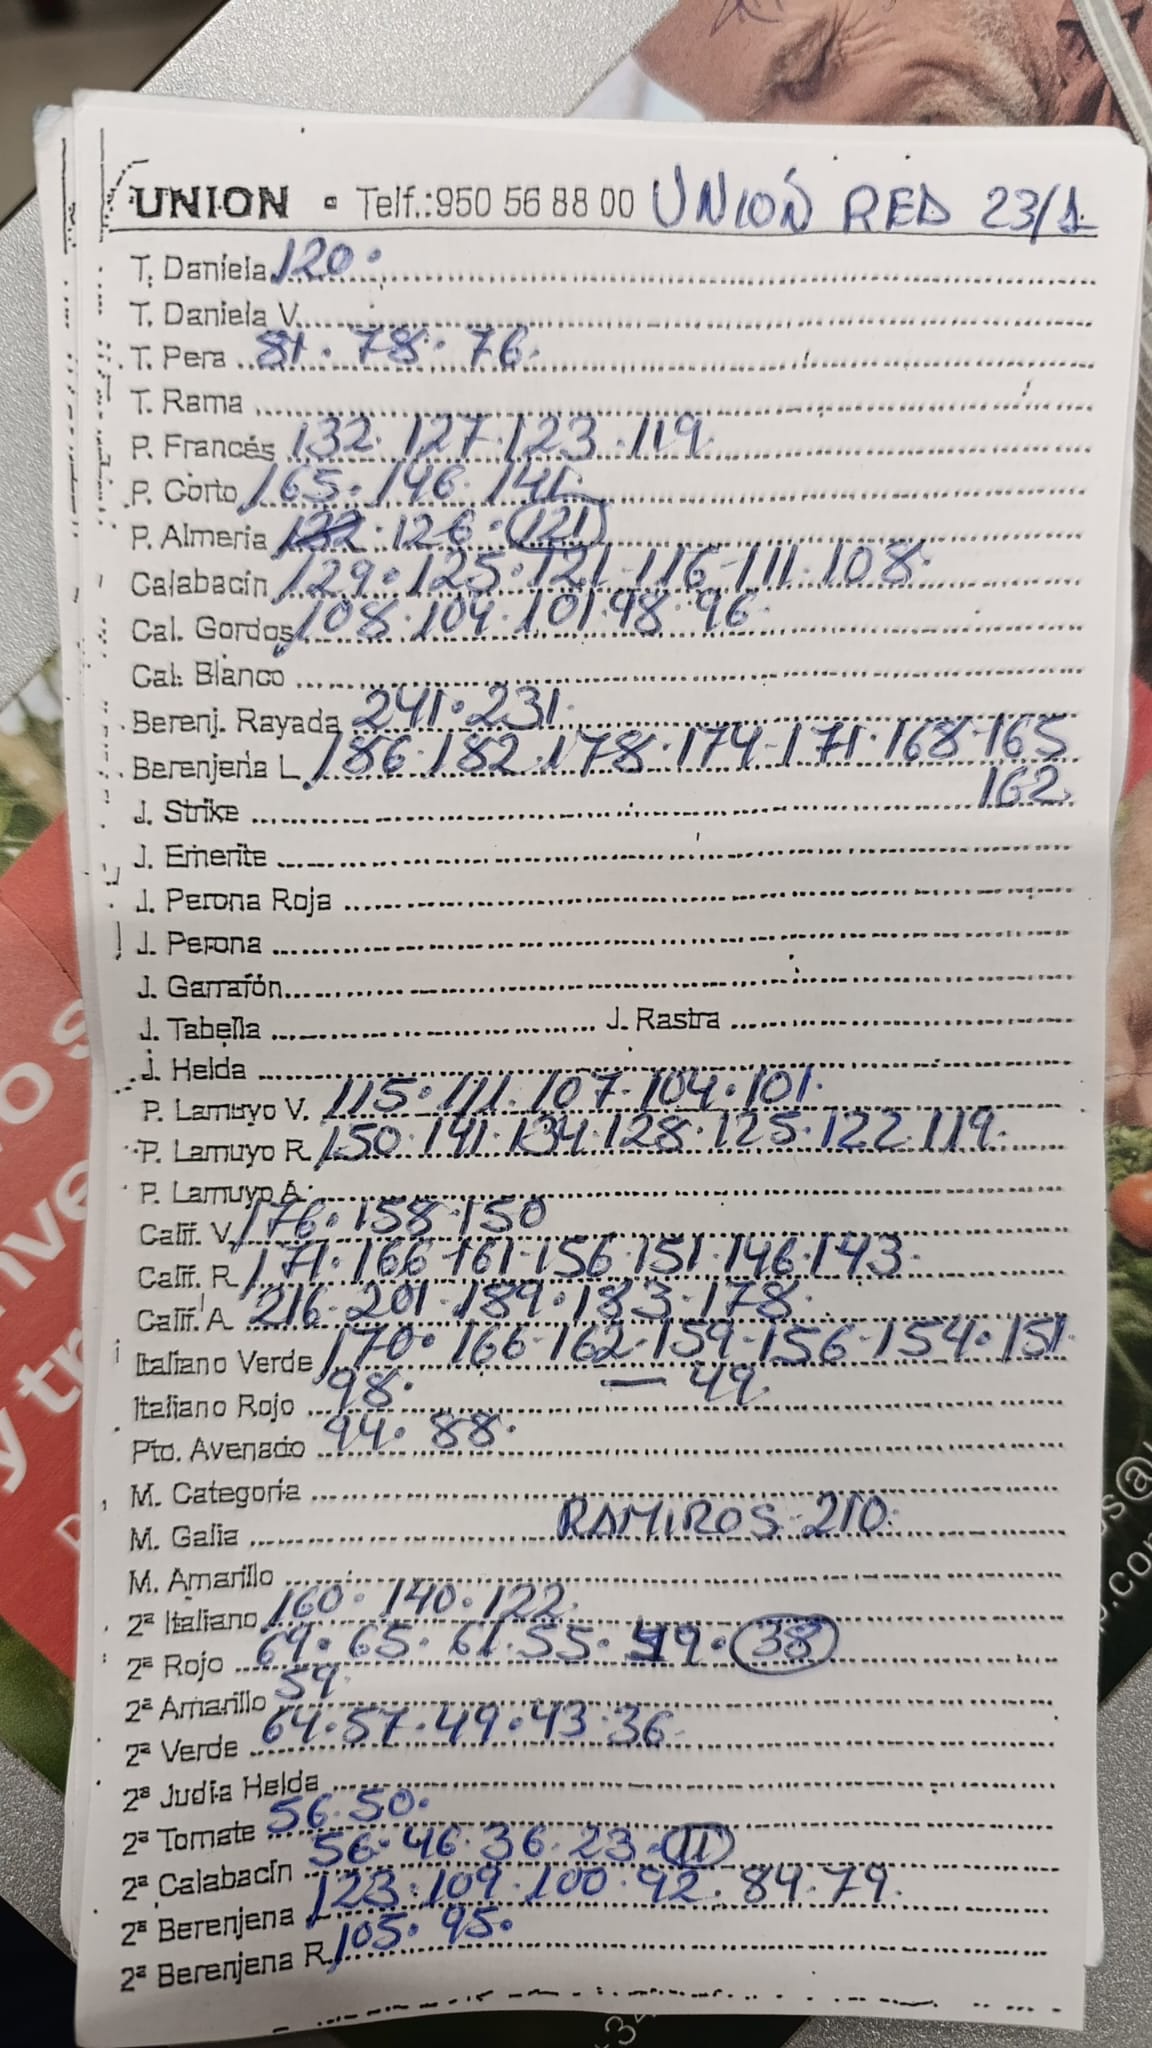 UNION - Telf.:950 56 88 00 UNIÓN RED 23/1
T. Daniela 120.
T. Daniela V.
T. Pera 81. 78. 76.
T. Rama
P. Francés 132. 127. 123. 119.
P. Corto 165. 146. 141.
P. Almeria 132. 126. 121
Calabacín 129. 125. 121-116-111. 108.
Cal. Gordos 108. 104. 101. 98. 96.
Cal. Blanco
Berenj. Rayada 241. 231.
Berenjena L. 186. 182. 178. 174-171. 168-165
J. Strike 162.
J. Emerite
J. Perona Roja
J. Perona
J. Garrafón
J. Tabella J. Rastra
J. Helda
P. Lamuyo V. 115. 111. 107. 104. 101.
P. Lamuyo R. 150. 141. 134. 128. 125. 122. 119.
P. Lamuyo A.
Calif. V. 176. 158. 150
Calif. R. 171. 166-161-156. 151. 146. 143.
Calif. A. 216. 201. 189. 183. 178.
Italiano Verde 170. 166-162. 159-156-154. 151.
Italiano Rojo 98. — 49.
Pto. Avenado 94. 88.
M. Categoria
M. Galia RAMIROS-210.
M. Amarillo
2ª Italiano 160. 140. 122.
2ª Rojo 69. 65. 61. 55. 49. 38
2ª Amarillo 59.
2ª Verde 64. 57. 49. 43. 36.
2ª Judía Helda
2ª Tomate 56. 50.
2ª Calabacín 56. 46. 36. 23. 11
2ª Berenjena 123. 109. 100. 92. 84. 79.
2ª Berenjena R. 105. 95.